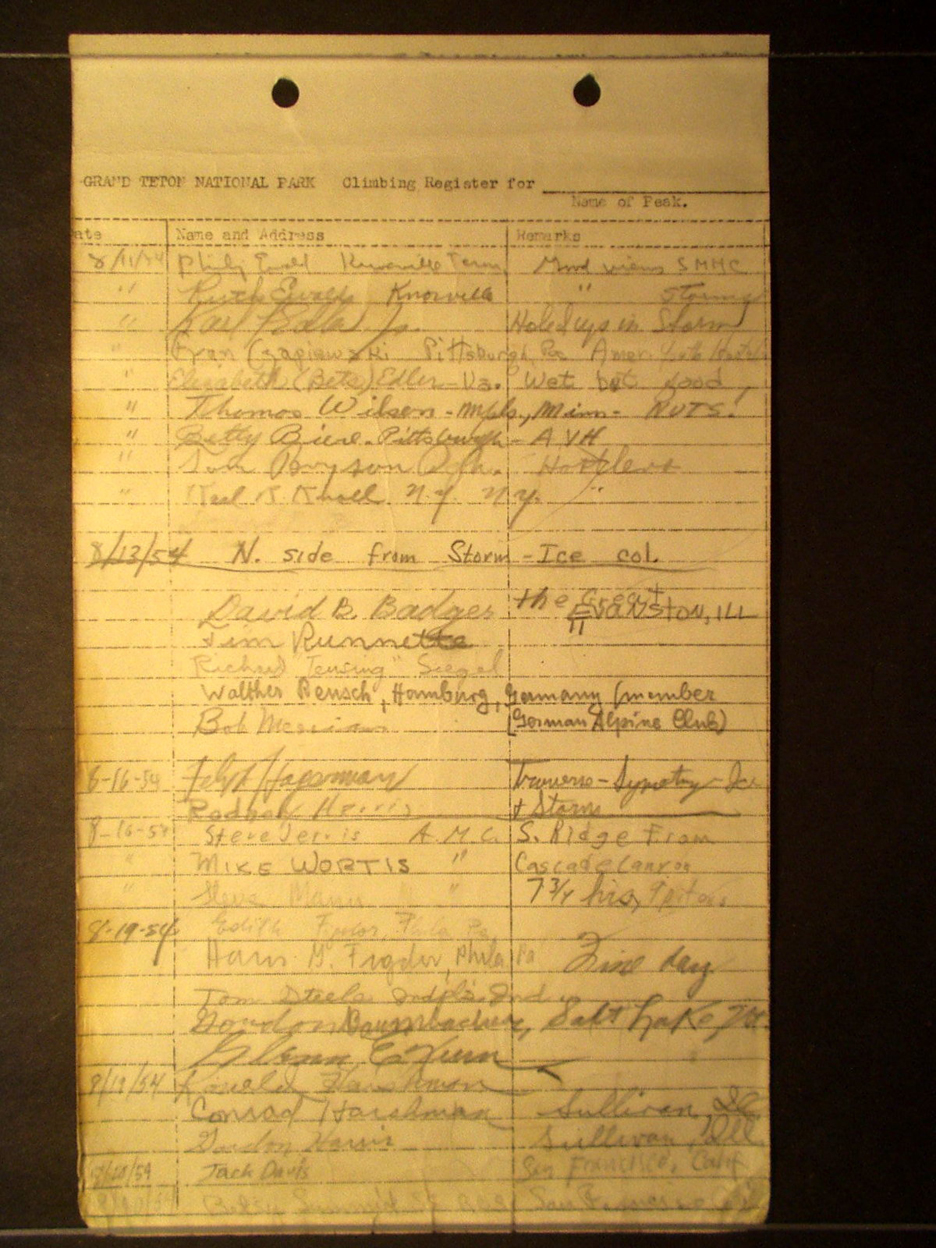 GRAND TETON NATIONAL PARK Climbing Register for
Name of Peak.
ate Name and Address Remarks
8/11/54 Philip Ewald Knoxville Tenn, Good views SMHC
" Ruth Ewald Knoxville " Stormy
" Karl Jr. Holed up in Storm
" Fran Czapiewski Pittsburgh, Pa Amer. Youth Hostel
" Elizabeth (Bets) Edler - Va. Wet but good
" Thomas Wilson - Mpls, Minn - NUTS!
" Betty Biere - Pittsburgh - AYH
" Hostlers
" Karl T. Knoll N.Y. N.Y. "
8/13/54 N. side from Storm - Ice col.
David B. Badger the Great EVANSTON, ILL
Jim Runnette
Richard "Tensing" Siegel
Walther Rensch, Hamburg, Germany (member
Bob Merriam (German Alpine Club)
8-16-54 Hagerman Traverse - Symetry - Ice
Rodney Harris + Storm
8-16-54 Steve Jervis A.M.C. S. Ridge From
" MIKE WORTIS " Cascade Canyon
" Steve " 7 3/4 hrs,
8-19-54 Edith Figdor, Phila Pa
Hans G. Figdor, Phila Pa Fine day
Tom Steele Indpls. Ind.
Gordon Baumbacher, Salt Lake
Glenn Exum
8/19/54 Ronald Harshman
Conrad Harshman Sullivan, Ill
Gordon Harris Sullivan, Ill
8/20/54 Jack Davis San Francisco, Calif
8/20/54 Betsy San Francisco